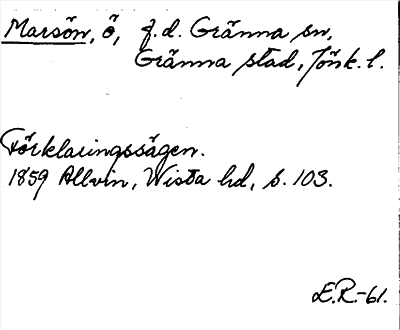 Marsön, ö, f.d. Gränna sn,
Gränna stad, Jönk. l.
Förklaringssägen.
1859 Allvin, Wista hd, s. 103.
E.R.-61.